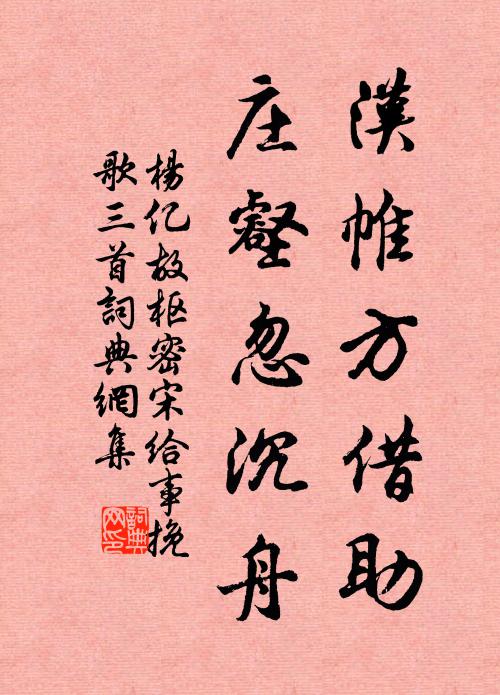 漢帷方借助
庄壑忽沉舟
楊亿故枢密宋给事挽
歌三首詞典網集
詞典
网印